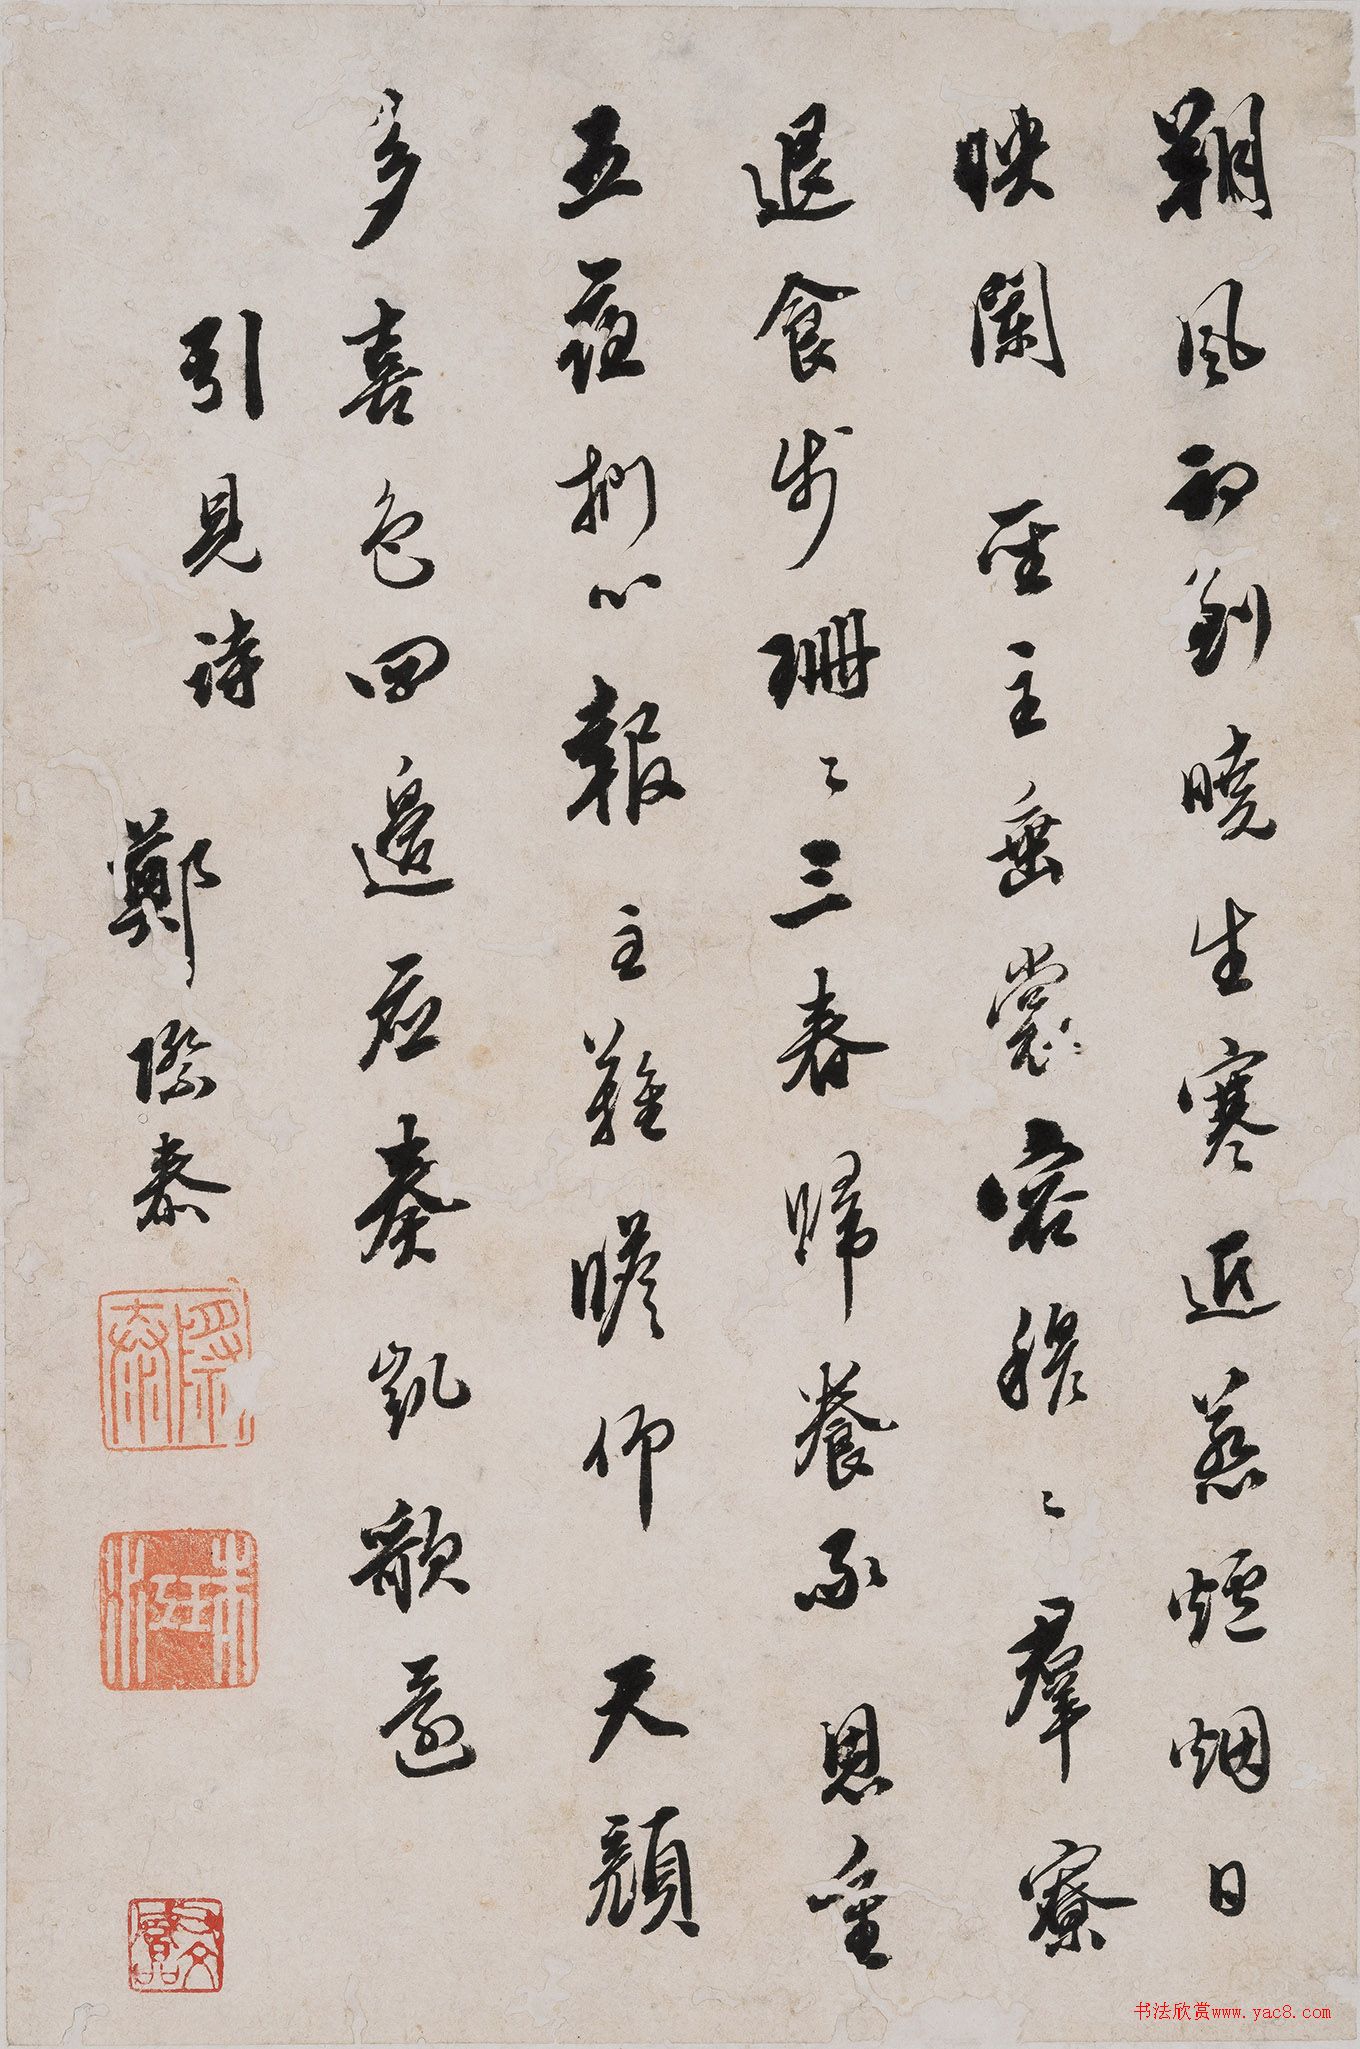 朔風初到曉生寒近惹爐烟日
映闌聖主垂裳容穆〻羣寮
退食步珊〻三春歸養承恩重
五夜捫心報主難瞻仰天顏
多喜色四邊應奏凱歌還
引見詩
鄭際泰
際泰
书法欣赏www.yac8.com